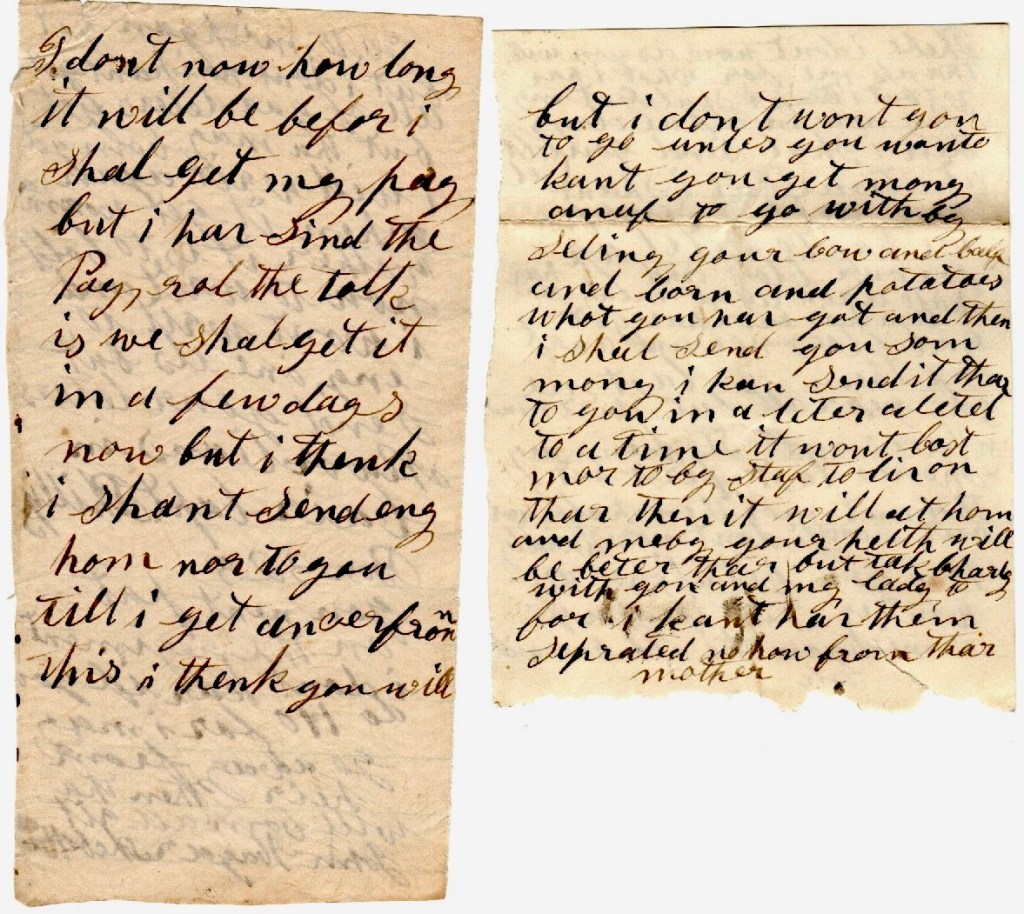 I dont now how long
it will be befor i
shal get my pay
but i har sind the
Pay rol the talk
is we shal get it
in a few days
now but i thenk
i shant send eny
hom nor to you
till i get ancer from
this i thenk you will
but i don't wont you
to go unles you wanto
kant you get mony
anuf to go with by
seling your cow and
and corn and potatoes
what you har got and then
i shal send you som
mony i kan send it thar
to you in a leter a letel
to a time it wont cost
mor to by stuf to liv on
thar then it will at hom
and meby your helth will
be beter thar but tak Charly
with you and my lady to
for i kant har them
seprated no how from thair
mother